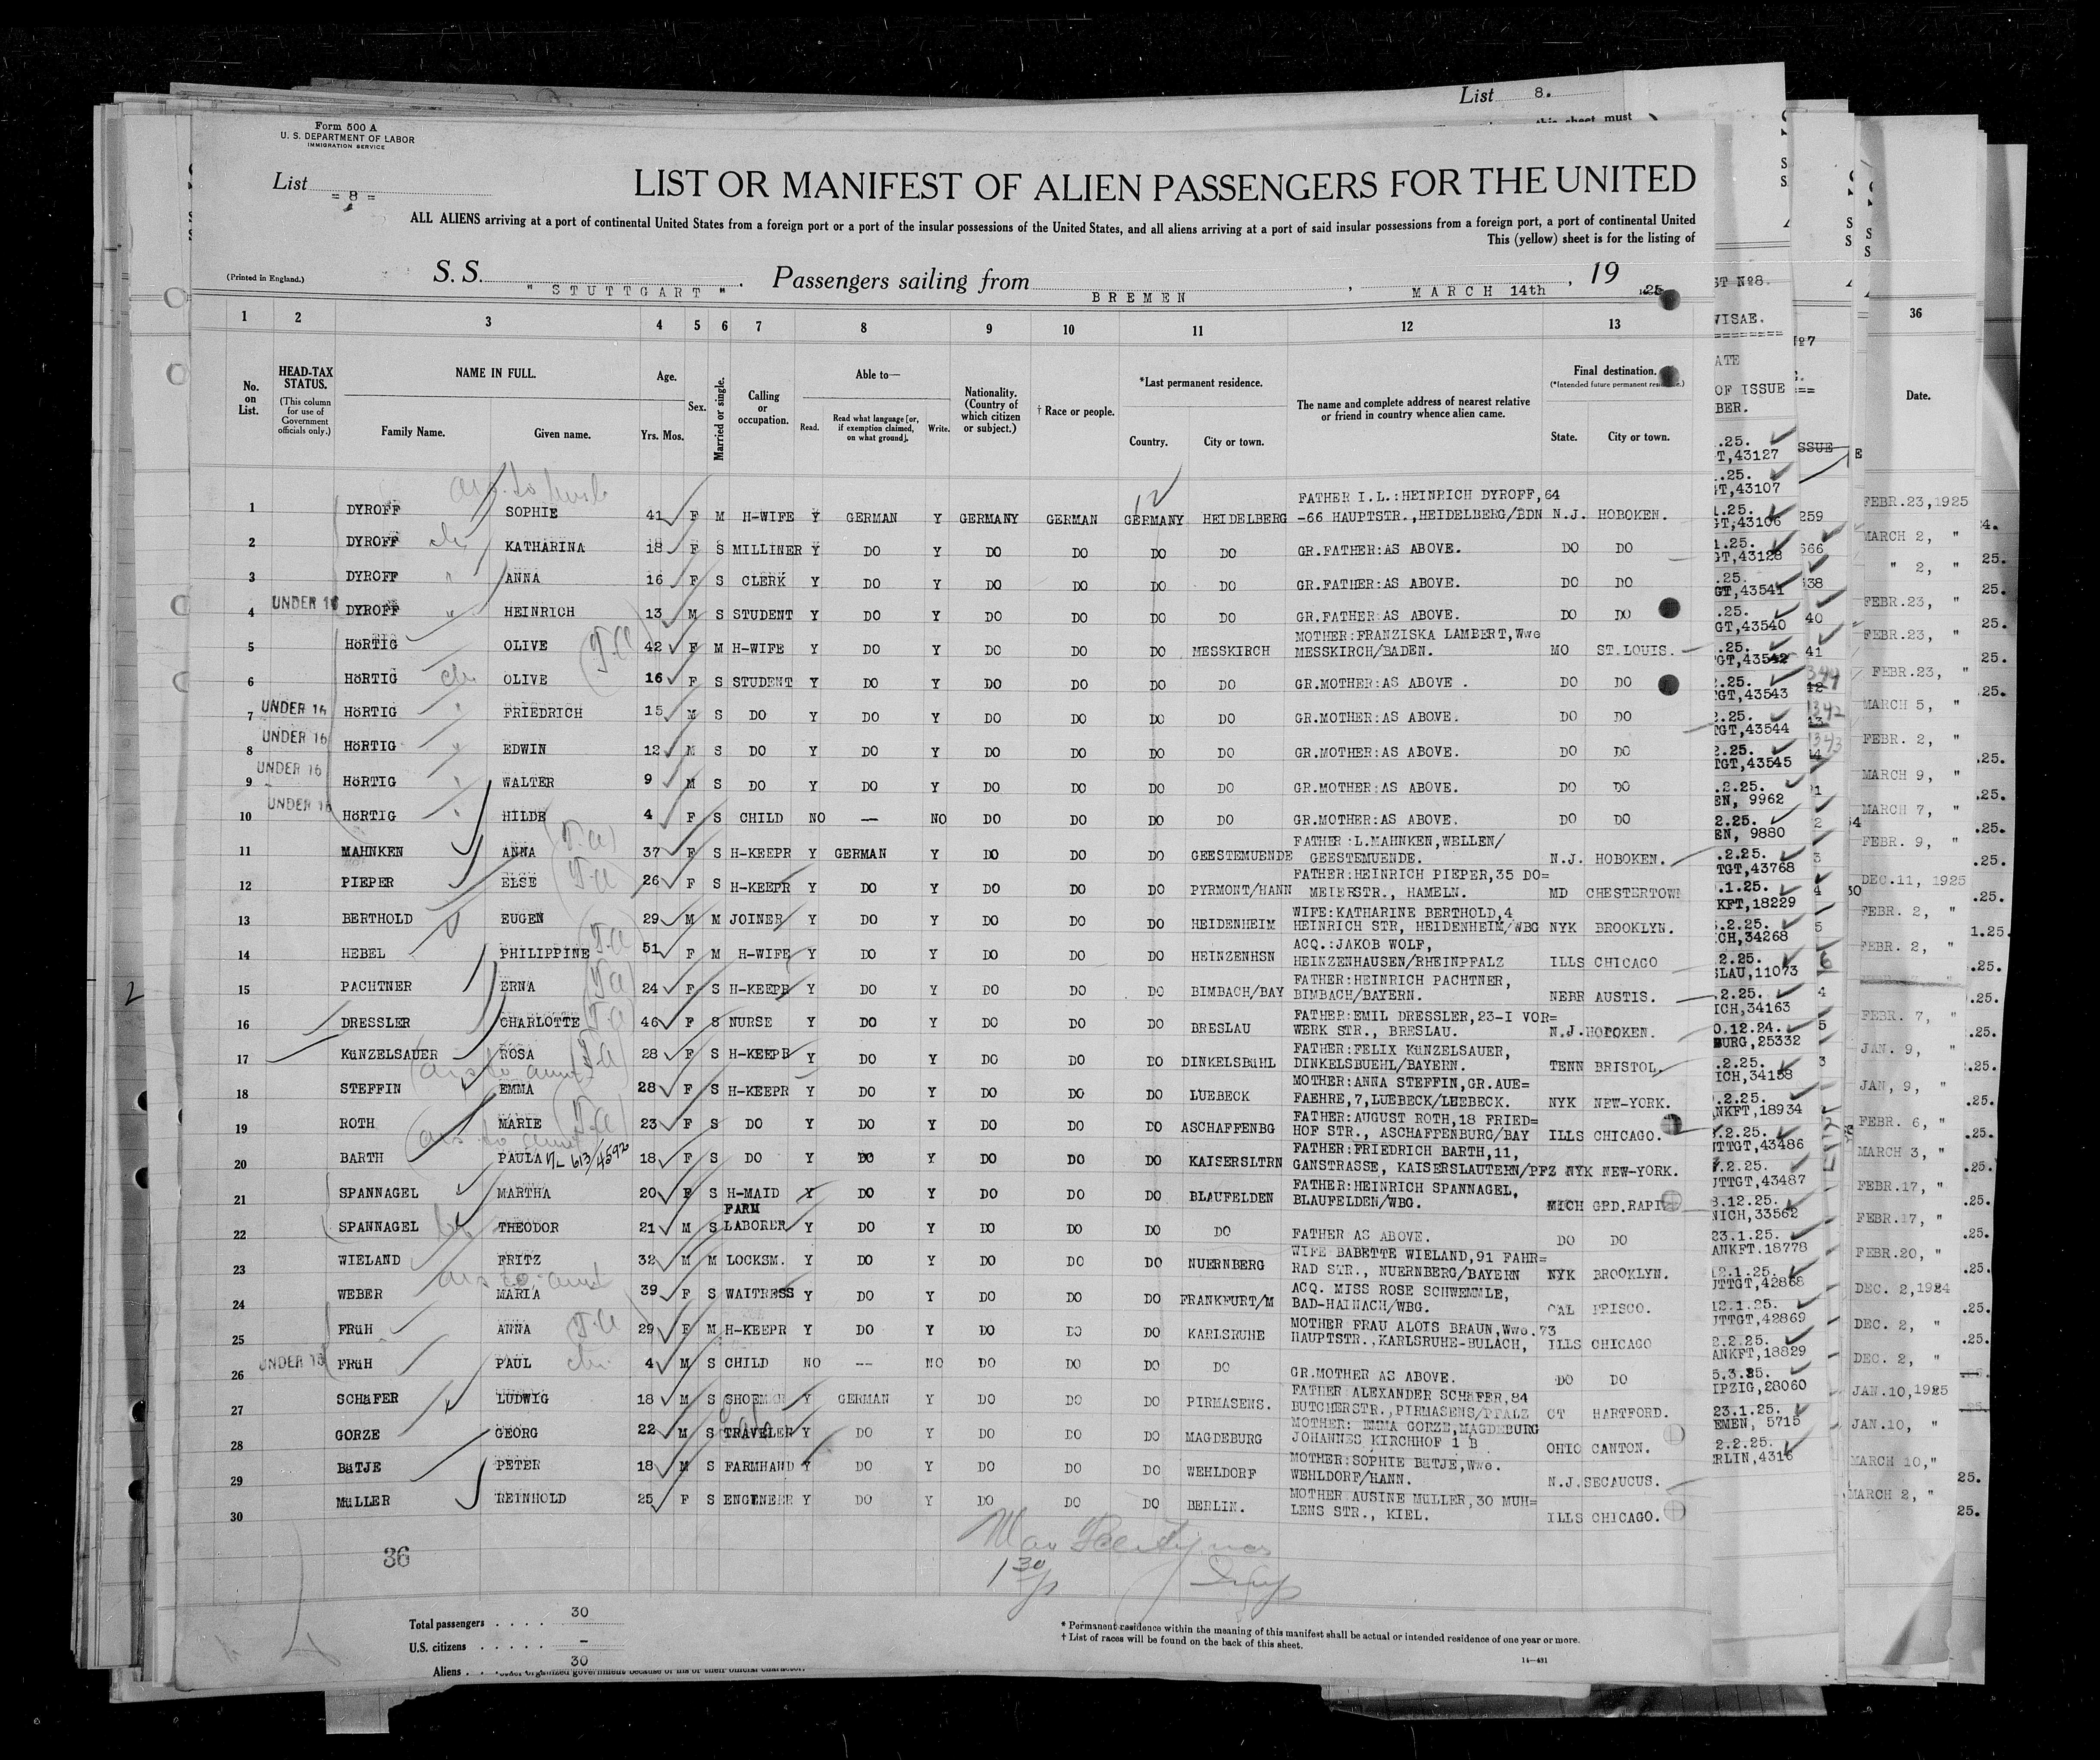 List 8.
this sheet must
Form 500 A
U. S. DEPARTMENT OF LABOR
IMMIGRATION SERVICE
List = 8 =
LIST OR MANIFEST OF ALIEN PASSENGERS FOR THE UNITED
ALL ALIENS arriving at a port of continental United States from a foreign port or a port of the insular possessions of the United States, and all aliens arriving at a port of said insular possessions from a foreign port, a port of continental United
This (yellow) sheet is for the listing of
(Printed in England.)
S. S. " STUTTGART " . Passengers sailing from BREMEN , MARCH 14th , 19 25
1 2 3 4 5 6 7 8 9 10 11 12 13
No. on List.
HEAD-TAX STATUS.
(This column for use of Government officials only.)
NAME IN FULL.
Family Name. Given name.
Age.
Yrs. Mos.
Sex.
Married or single.
Calling or occupation.
Able to—
Read. Read what language [or, if exemption claimed, on what ground]. Write.
Nationality. (Country of which citizen or subject.)
† Race or people.
*Last permanent residence.
Country. City or town.
The name and complete address of nearest relative or friend in country whence alien came.
Final destination.
(*Intended future permanent residence.)
State. City or town.
1 DYROFF SOPHIE 41 F M H-WIFE Y GERMAN Y GERMANY GERMAN GERMANY HEIDELBERG FATHER I.L.:HEINRICH DYROFF,64 -66 HAUPTSTR.,HEIDELBERG/BDN N.J. HOBOKEN.
2 DYROFF KATHARINA 18 F S MILLINER Y DO Y DO DO DO DO GR.FATHER:AS ABOVE. DO DO
3 DYROFF ANNA 16 F S CLERK Y DO Y DO DO DO DO GR.FATHER:AS ABOVE. DO DO
UNDER 16 4 DYROFF HEINRICH 13 M S STUDENT Y DO Y DO DO DO DO GR.FATHER AS ABOVE. DO DO
5 HöRTIG OLIVE 42 F M H-WIFE Y DO Y DO DO DO MESSKIRCH MOTHER:FRANZISKA LAMBERT,Wwe MESSKIRCH/BADEN. MO ST.LOUIS.
6 HöRTIG OLIVE 16 F S STUDENT Y DO Y DO DO DO DO GR.MOTHER:AS ABOVE . DO DO
UNDER 16 7 HöRTIG FRIEDRICH 15 M S DO Y DO Y DO DO DO DO GR.MOTHER:AS ABOVE. DO DO
UNDER 16 8 HöRTIG EDWIN 12 M S DO Y DO Y DO DO DO DO GR.MOTHER:AS ABOVE. DO DO
UNDER 16 9 HöRTIG WALTER 9 M S DO Y DO Y DO DO DO DO GR.MOTHER:AS ABOVE. DO DO
UNDER 16 10 HöRTIG HILDE 4 F S CHILD NO — NO DO DO DO DO GR.MOTHER:AS ABOVE. DO DO
11 MAHNKEN ANNA 37 F S H-KEEPR Y GERMAN Y DO DO DO GEESTEMUENDE FATHER:L.MAHNKEN,WELLEN/ GEESTEMUENDE. N.J. HOBOKEN.
12 PIEPER ELSE 26 F S H-KEEPR Y DO Y DO DO DO PYRMONT/HANN FATHER:HEINRICH PIEPER,35 DO= MEIERSTR., HAMELN. MD CHESTERTOWN
13 BERTHOLD EUGEN 29 M M JOINER Y DO Y DO DO DO HEIDENHEIM WIFE:KATHARINE BERTHOLD,4 HEINRICH STR, HEIDENHEIM/WBG NYK BROOKLYN.
14 HEBEL PHILIPPINE 51 F M H-WIFE Y DO Y DO DO DO HEINZENHSN ACQ.:JAKOB WOLF, HEINZENHAUSEN/RHEINPFALZ ILLS CHICAGO
15 PACHTNER ERNA 24 F S H-KEEPR Y DO Y DO DO DO BIMBACH/BAY FATHER:HEINRICH PACHTNER, BIMBACH/BAYERN. NEBR AUSTIS.
16 DRESSLER CHARLOTTE 46 F S NURSE Y DO Y DO DO DO BRESLAU FATHER:EMIL DRESSLER,23-I VOR= WERK STR., BRESLAU. N.J.HOBOKEN.
17 KüNZELSAUER ROSA 28 F S H-KEEPR Y DO Y DO DO DO DINKELSBüHL FATHER:FELIX KüNZELSAUER, DINKELSBUEHL/BAYERN. TENN BRISTOL.
18 STEFFIN EMMA 28 F S H-KEEPR Y DO Y DO DO DO LUEBECK MOTHER:ANNA STEFFIN,GR.AUE= FAEHRE,7,LUEBECK/LUEBECK. NYK NEW-YORK.
19 ROTH MARIE 23 F S DO Y DO Y DO DO DO ASCHAFFENBG FATHER:AUGUST ROTH,18 FRIED= HOF STR., ASCHAFFENBURG/BAY ILLS CHICAGO.
20 BARTH PAULA 613/4592 18 F S DO Y DO Y DO DO DO KAISERSLTRN FATHER:FRIEDRICH BARTH,11, GANSTRASSE, KAISERSLAUTERN/PFZ NYK NEW-YORK.
21 SPANNAGEL MARTHA 20 F S H-MAID Y DO Y DO DO DO BLAUFELDEN FATHER:HEINRICH SPANNAGEL, BLAUFELDEN/WBG. MICH GRD.RAPID
22 SPANNAGEL THEODOR 21 M S FARM LABORER Y DO Y DO DO DO DO FATHER AS ABOVE. DO DO
23 WIELAND FRITZ 32 M M LOCKSM. Y DO Y DO DO DO NUERNBERG WIFE BABETTE WIELAND,91 FAHR= RAD STR., NUERNBERG/BAYERN NYK BROOKLYN.
24 WEBER MARIA 39 F S WAITRESS Y DO Y DO DO DO FRANKFURT/M ACQ. MISS ROSE SCHWEMMLE, BAD-HAINACH/WBG. CAL FRISCO.
25 FRüH ANNA 29 F M H-KEEPR Y DO Y DO DO DO KARLSRUHE MOTHER FRAU ALOIS BRAUN,Wwe.73 HAUPTSTR.,KARLSRUHE-BULACH, ILLS CHICAGO
UNDER 16 26 FRüH PAUL 4 M S CHILD NO -- NO DO DO DO DO GR.MOTHER AS ABOVE. DO DO
27 SCHäFER LUDWIG 18 M S Y GERMAN Y DO DO DO PIRMASENS. FATHER ALEXANDER SCHäFER,84 BUTCHERSTR.,PIRMASENS/PFALZ CT HARTFORD.
28 GORZE GEORG 22 M S TRAVELER Y DO Y DO DO DO MAGDEBURG MOTHER: EMMA GORZE,MAGDEBURG JOHANNES KIRCHHOF 1 B OHIO CANTON.
29 BäTJE PETER 18 M S FARMHAND Y DO Y DO DO DO WEHLDORF MOTHER:SOPHIE BäTJE,Wwe. WEHLDORF/HANN. N.J.SECAUCUS.
30 MüLLER REINHOLD 25 F S ENGINEER Y DO Y DO DO DO BERLIN. MOTHER AUSINE MüLLER,30 MUH= LENS STR., KIEL. ILLS CHICAGO.
36
Total passengers . . . . 30
U.S. citizens . . . . . –
Aliens . . 30
* Permanent residence within the meaning of this manifest shall be actual or intended residence of one year or more.
† List of races will be found on the back of this sheet.
14—431
ST №8.
VISAE.
ATE
OF ISSUE
BER.
T,43127
GT,43107
GT,43106
GT,43128
GT,43541
GT,43540
GT,43542
TGT,43543
TGT,43544
TGT,43545
EN, 9962
EN, 9880
TGT,43768
KFT,18229
ICH,34268
SLAU,11073
ICH,34163
0.12.24.
BURG,25332
ICH,34158
ANKFT,18934
UTTGT,43486
UTTGT,43487
NICH,33562
23.1.25.
ANKFT.18778
12.1.25.
UTTGT,42868
12.1.25.
UTTGT,42869
2.2.25.
ANKFT,18829
5.3.25.
IPZIG,28060
23.1.25.
EMEN, 5715
2.2.25.
ERLIN,4316
36
Date.
FEBR.23,1925
MARCH 2, "
" 2, "
FEBR.23, "
FEBR.23, "
FEBR.23, "
MARCH 5, "
FEBR. 2, "
MARCH 9, "
MARCH 7, "
FEBR. 9, "
DEC.11, 1925
FEBR. 2, "
FEBR. 2, "
FEBR. 7, "
JAN. 9, "
JAN, 9, "
FEBR. 6, "
MARCH 3, "
FEBR.17, "
FEBR.17, "
FEBR.20, "
DEC. 2,1924
DEC. 2, "
DEC. 2, "
JAN.10,1925
JAN.10, "
MARCH 10,"
MARCH 2, "